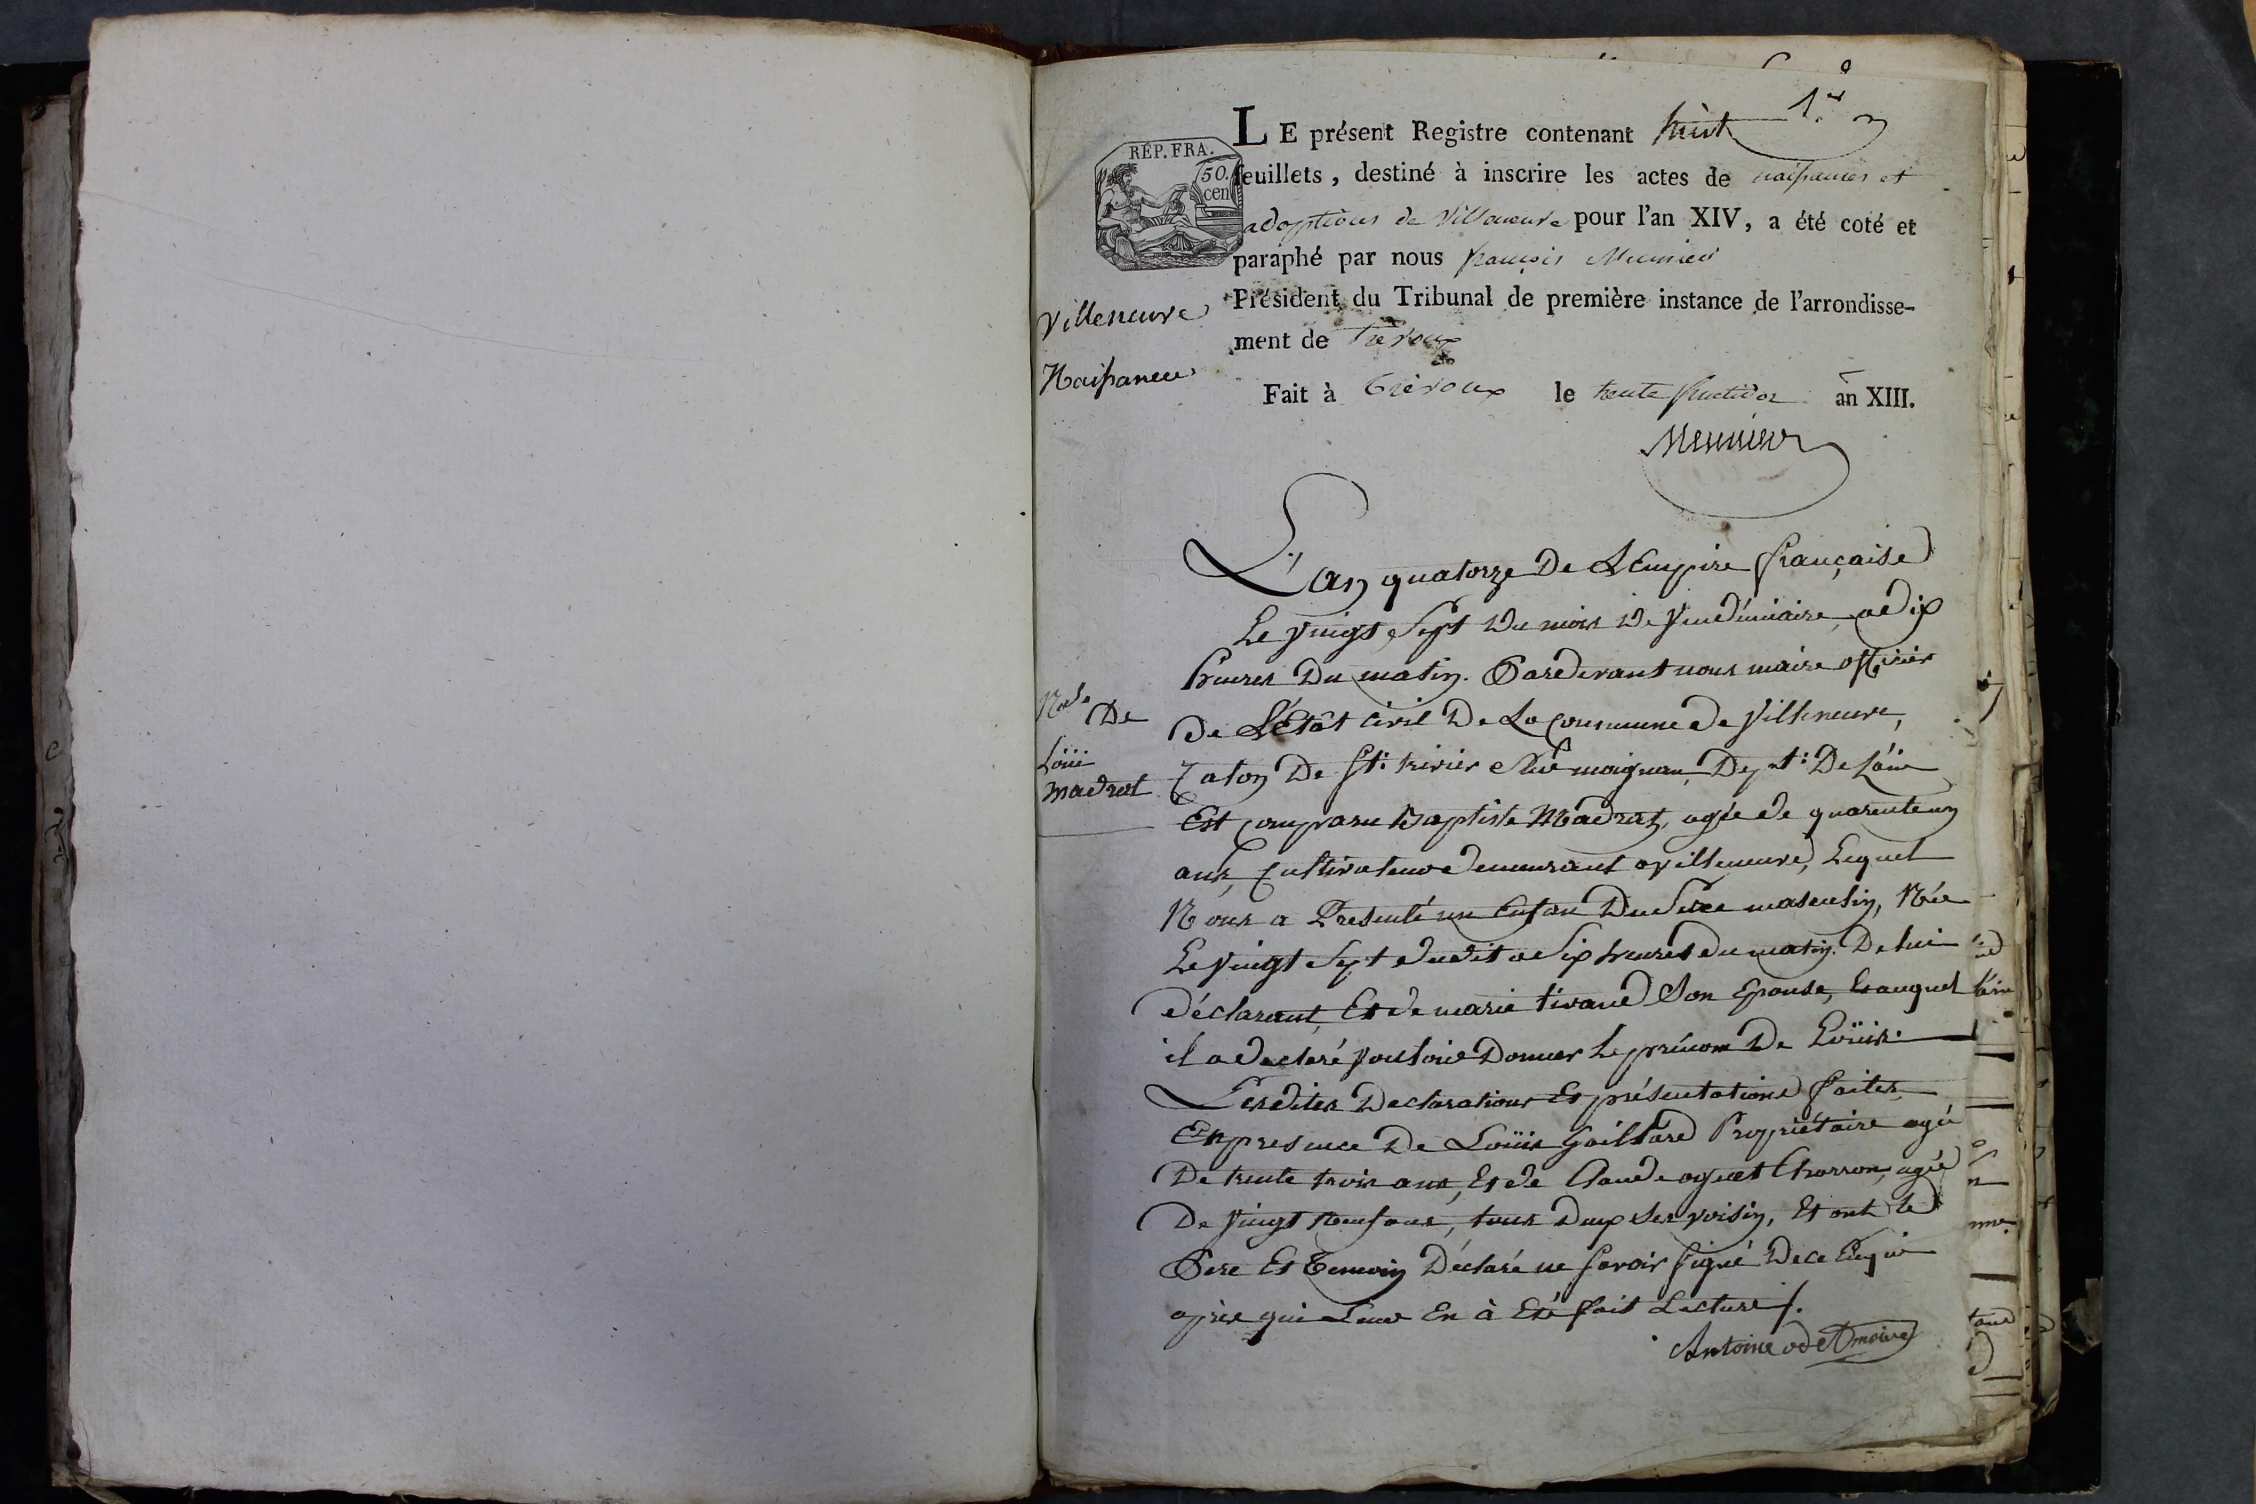 1er
LE présent Registre contenant huit
feuillets, destiné à inscrire les actes de naissances et
adoptions de Villeneuve pour l'an XIV, a été coté et
paraphé par nous françois Meunier
Président du Tribunal de première instance de l'arrondisse-
ment de Trévoux
Fait à Trévoux le trente fructidor an XIII.
Meunier
RÉP. FRA.
50.
cen
Villeneuve
Naissances
L'an quatorze De L'Empire française
Le vingt Sept Du mois De Vendémiaire, a dix
heures Du matin. Pardevant nous maire officier
De L'Etât Civil De La Commune de Villeneuve,
Caton De St: trivier Sur moignan, Depnt: De L'ain
Est comparu Baptiste Madrat, agée de quarente un
ans, Cultivateur demeurant a villeneuve, Lequel
Nous a Presenté un Enfan Du Sexe masculin, Née
Le vingt Sept dudit a Six heures du matin. De lui
déclarant, Et de marie tivand Son Epouse, Et auquel
il a declaré vouloir Donner Le prénom De Loüis.
Lesdites Declarations Et présentations faites
En presence De Loüis Gaillard Propriétaire agé
De trente trois ans, Et de Claude oguet Charron, agée
De vingt neuf ans, tous Deux Ses voisin, Et ont le
Pere Et temoin Déclaré ne savoir signé De ce Enquis
après qui Leur En à Eté fait Lecture /.
Antoine odet maire
Nce De
Loüi
madrat